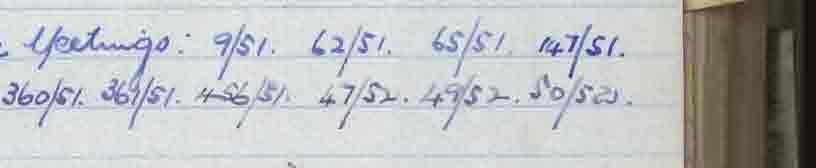 Meetings: 9/51. 62/51. 65/51. 147/51.
360/51. 369/51. 456/51. 47/52. 49/52. 50/52.